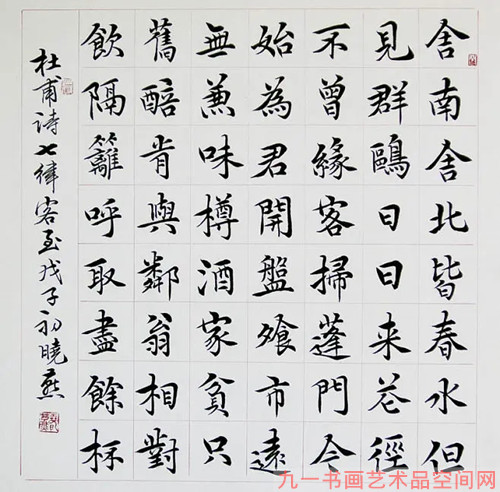 舍南舍北皆春水但
見群鷗日日来花徑
不曾緣客掃蓬門今
始為君開盤飧市遠
無兼味樽酒家貧只
舊醅肯與鄰翁相對
飲隔籬呼取盡餘杯
杜甫詩七律客至戊子初曉燕
九一书画艺术品空间网